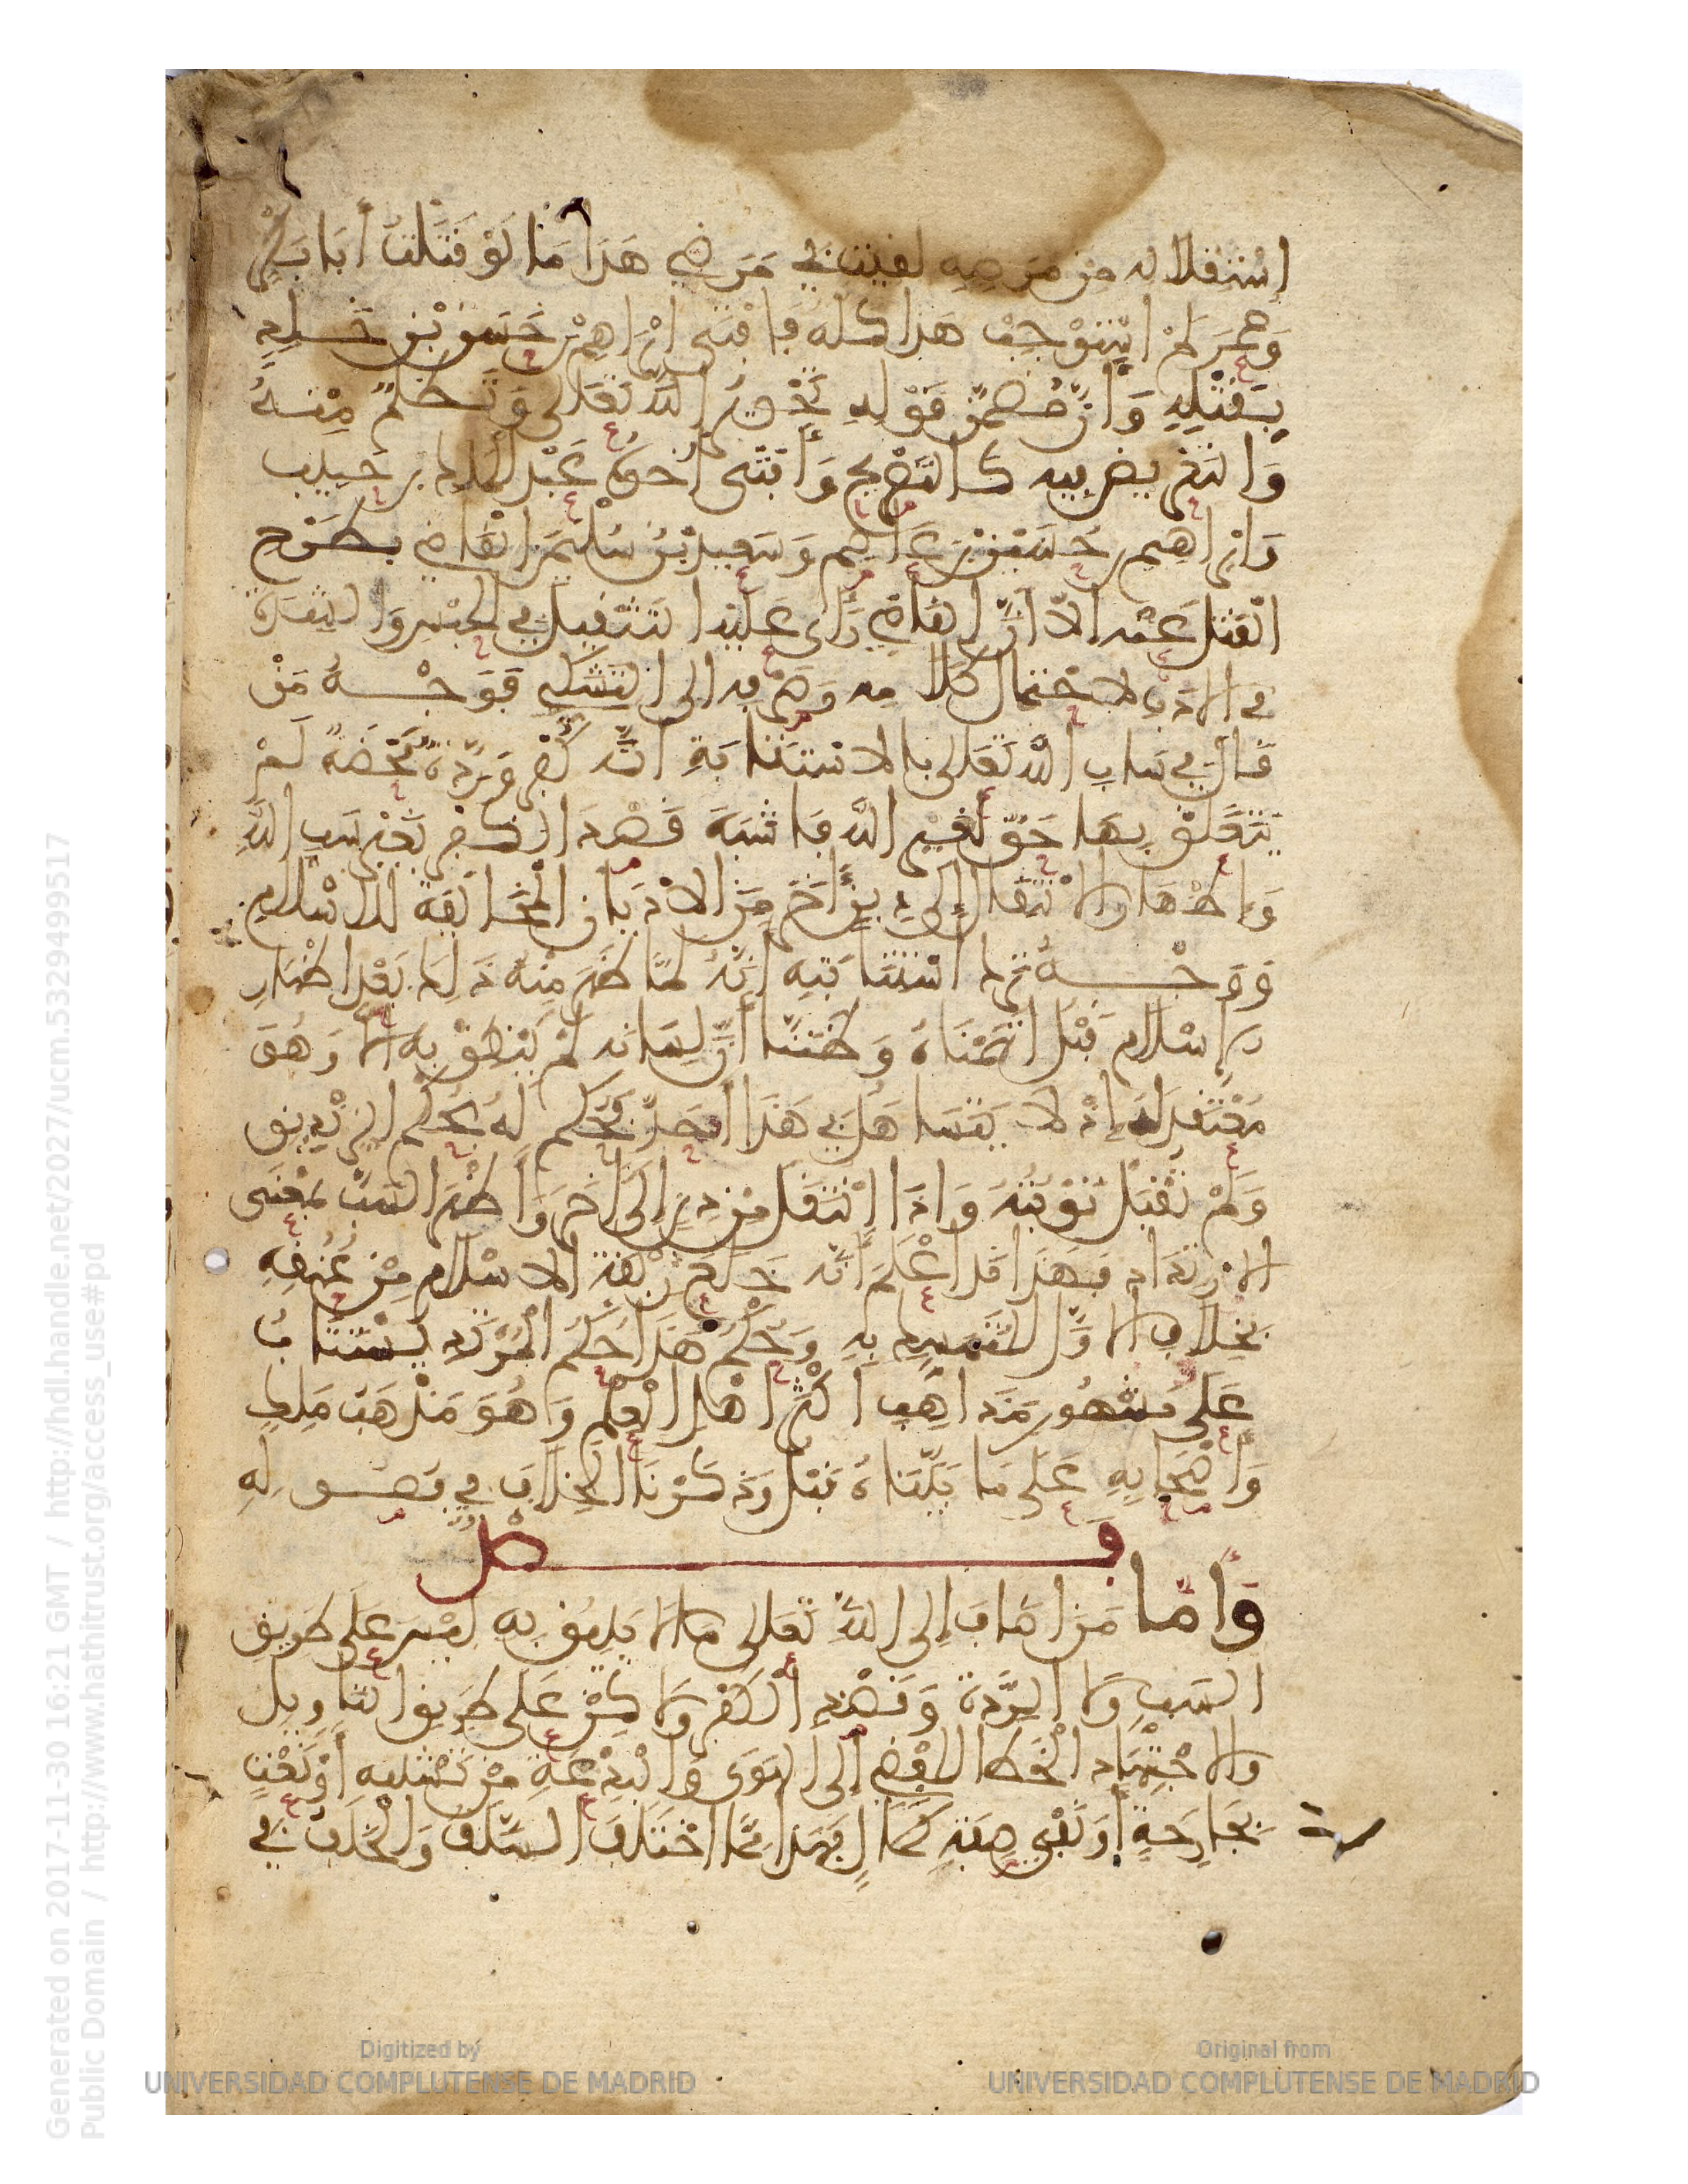 استقلاله من مرضه لقيت في مرضي هذا ما لو قتلت أبا بكر
وعمر لم استوجب هذا كله فافتى ابرهيم بن حسين بن خلد
بقتله وان مضمن قوله تجوير الله تعلى وتظلم منه
والتعريض فيه كالتصريح وأفتى أخوه عبد الملك بن حبيب
وابرهيم بن حسين بن عاصم وسعيد بن سليمن القاضي بطرح
القتل عنه الا ان القاضي رأى عليه التثقيل في الحبس والشدة
في الادب لاحتمال كلامه وصرفه الى التشكي فوجه من
قال في ساب الله تعلى بالاستتابة انه كفر وردة محضة لم
يتعلق بها حق لغير الله فاشبه قصد الكفر بغير سب الله
واظهار الانتقال إلى دين آخر من الاديان المخالفة للاسلام
ووجه ترك استتابته انه لما ظهر منه ذلك بعد اظهار
الاسلام قبل اتهمناه وظننا أن لسانه لم ينطق به الا وهو
معتقد له إذ لا يتساهل في هذا احد فحكم له بحكم الزنديق
ولم تقبل توبته واذا انتقل من دين إلى آخر وأظهر السب بمعنى
الارتداد فهذا قد اعلم أنه خلع ربقة الاسلام من عنقه
بخلاف الاول المتمسك به وحكم هذا حكم المرتد يستتاب
على مشهور مذاهب أكثر اهل العلم وهو مذهب ملك
وأصحابه على ما بيناه قبل وذكرنا الخلاف في فصوله
فصل
وأما من اضاف إلى الله تعلى ما لا يليق به ليس على طريق
السب ولا الردة وقصد الكفر ولاكن على طريق التاويل
والاجتهاد الخطا المفضي إلى الهوى والبدعة من تشبيه أو نعت
بجارحة أو نفي صفة كمال فهذا مما اختلف السلف والخلف في
Generated on 2017-11-30 16:21 GMT / http://hdl.handle.net/2027/ucm.5329499517
Public Domain / http://www.hathitrust.org/access_use#pd
Digitized by
UNIVERSIDAD COMPLUTENSE DE MADRID
Original from
UNIVERSIDAD COMPLUTENSE DE MADRID